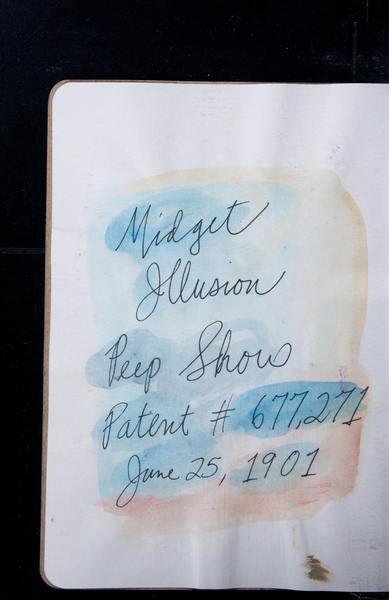 Midget
Illusion
Peep Show
Patent # 677,271
June 25, 1901